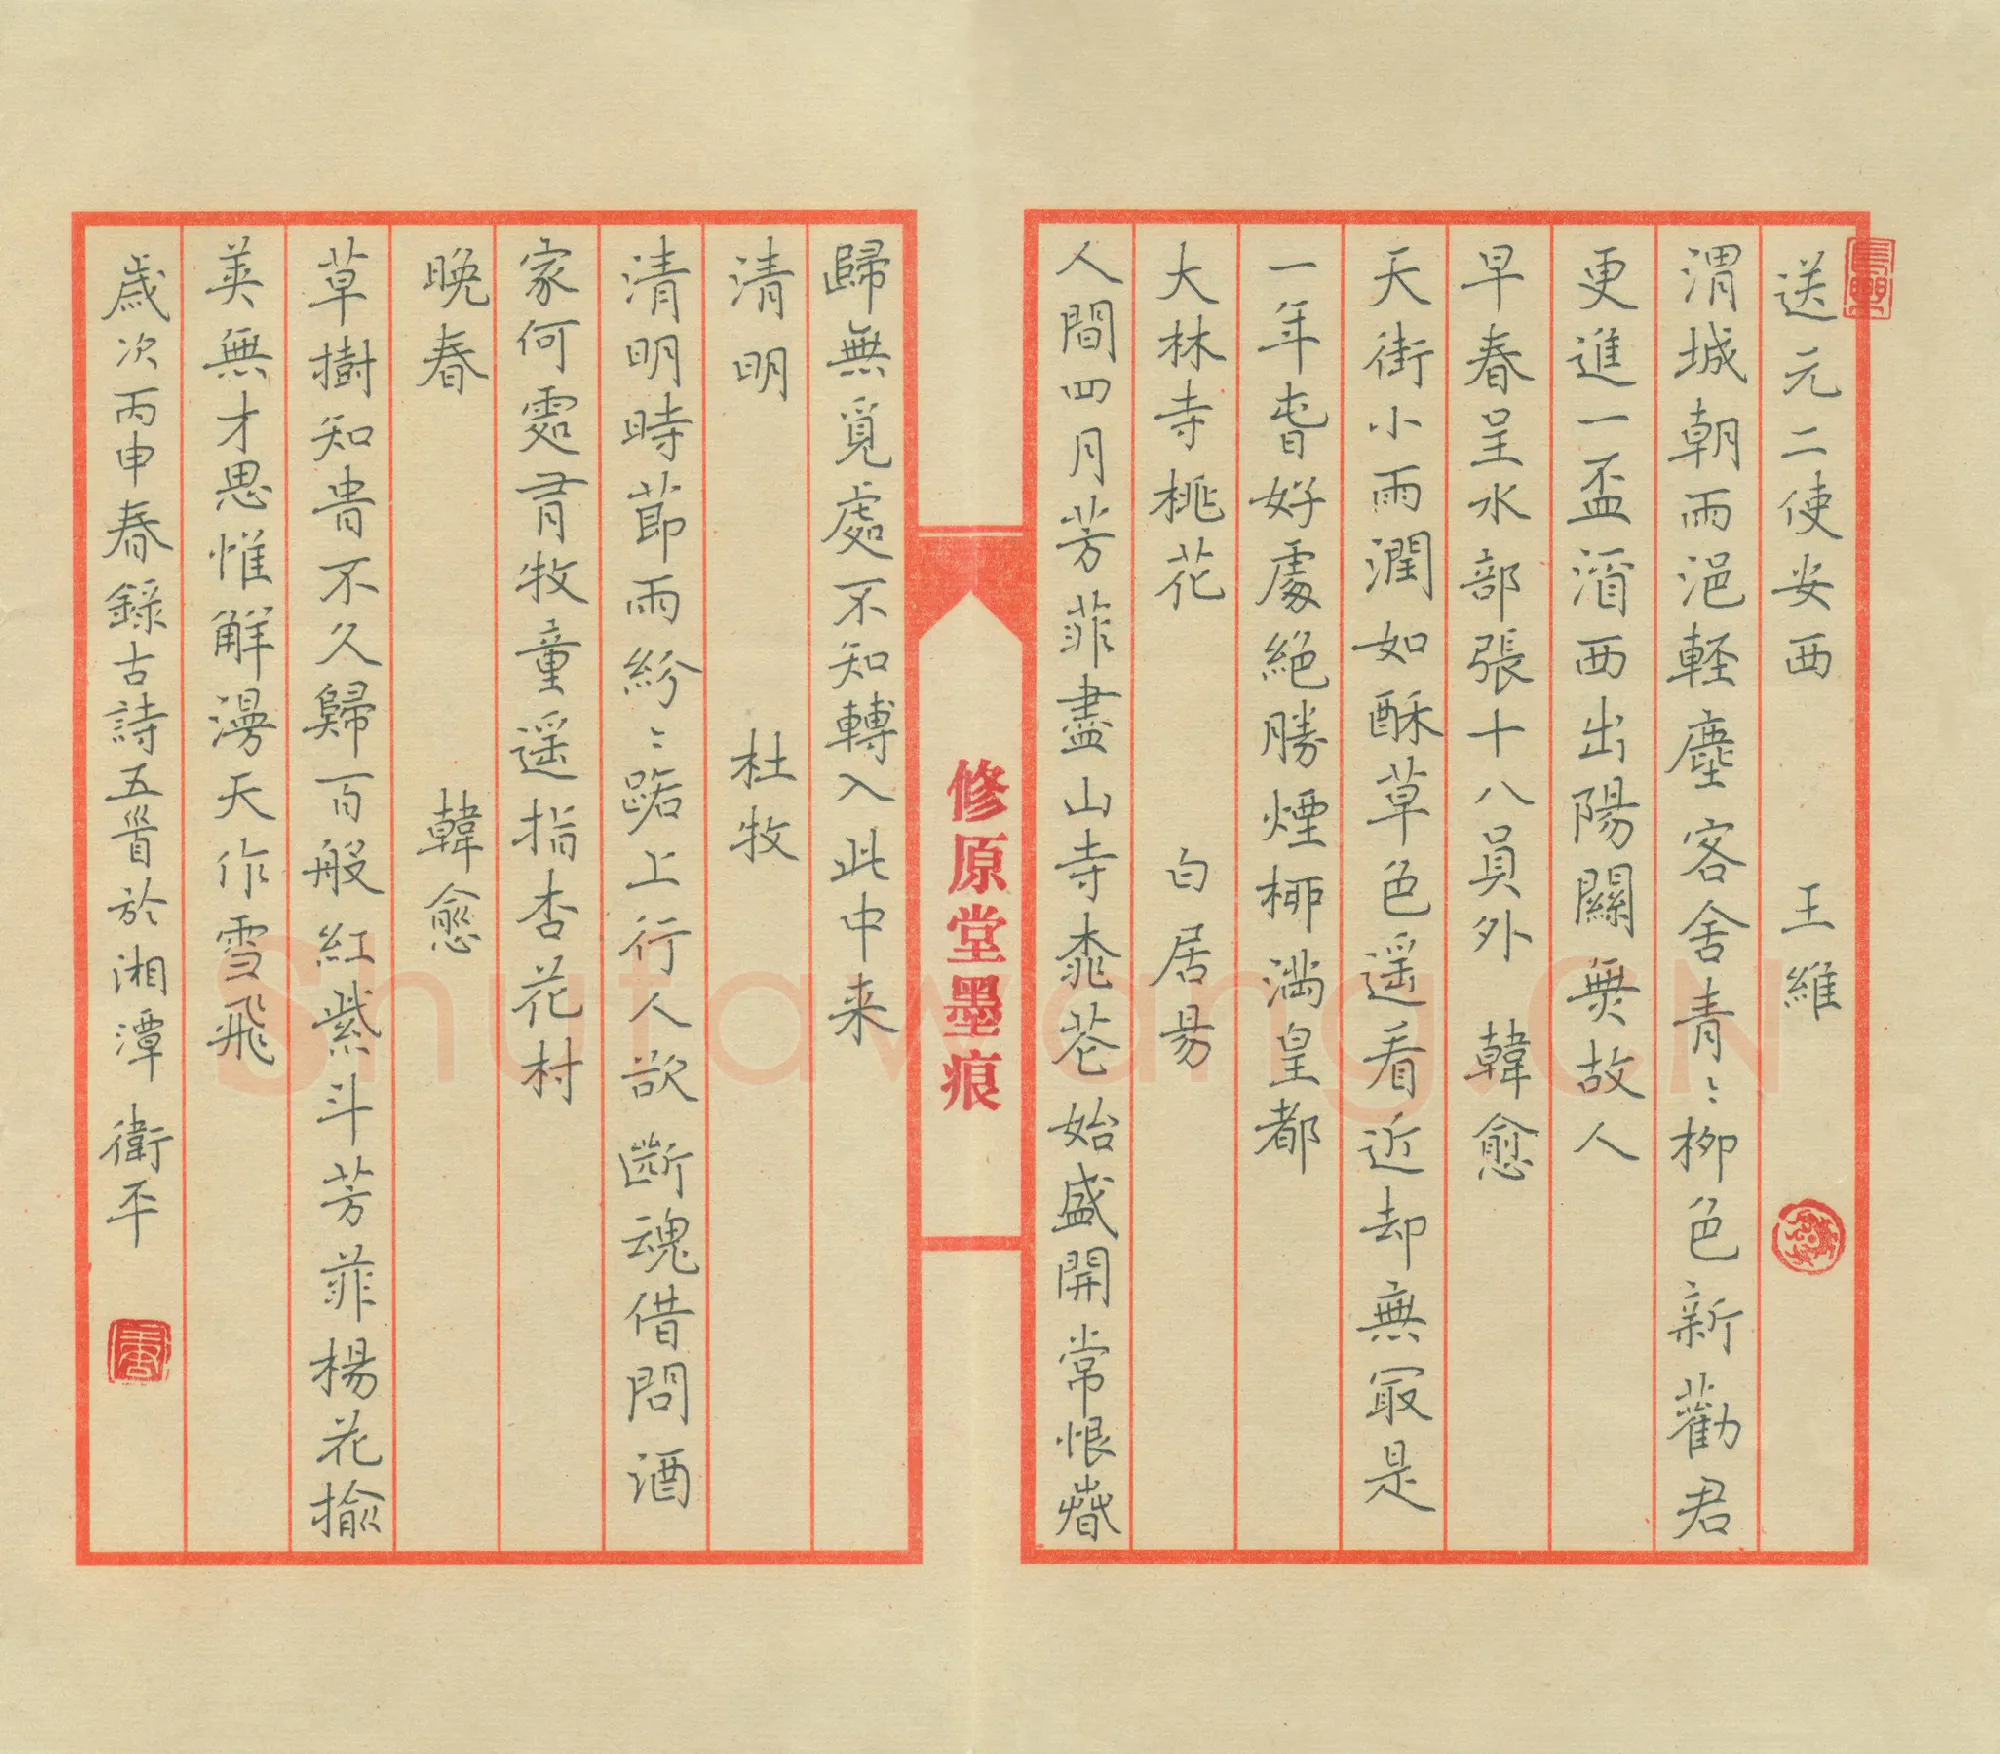 送元二使安西 王維
渭城朝雨浥輕塵客舍青〻柳色新勸君
更進一盃酒西出陽關無故人
早春呈水部張十八員外 韓愈
天街小雨潤如酥草色遥看近却無冣是
一年春好處絕勝煙柳滿皇都
大林寺桃花 白居易
人間四月芳菲盡山寺桃花始盛開常恨春
歸無覓處不知轉入此中来
清明 杜牧
清明時節雨紛〻路上行人欲斷魂借問酒
家何處有牧童遥指杏花村
晚春 韓愈
草樹知春不久歸百般紅紫斗芳菲楊花榆
莢無才思惟解漫天作雪飛
歲次丙申春錄古詩五首於湘潭 衛平
修原堂墨痕
Shufawang.CN